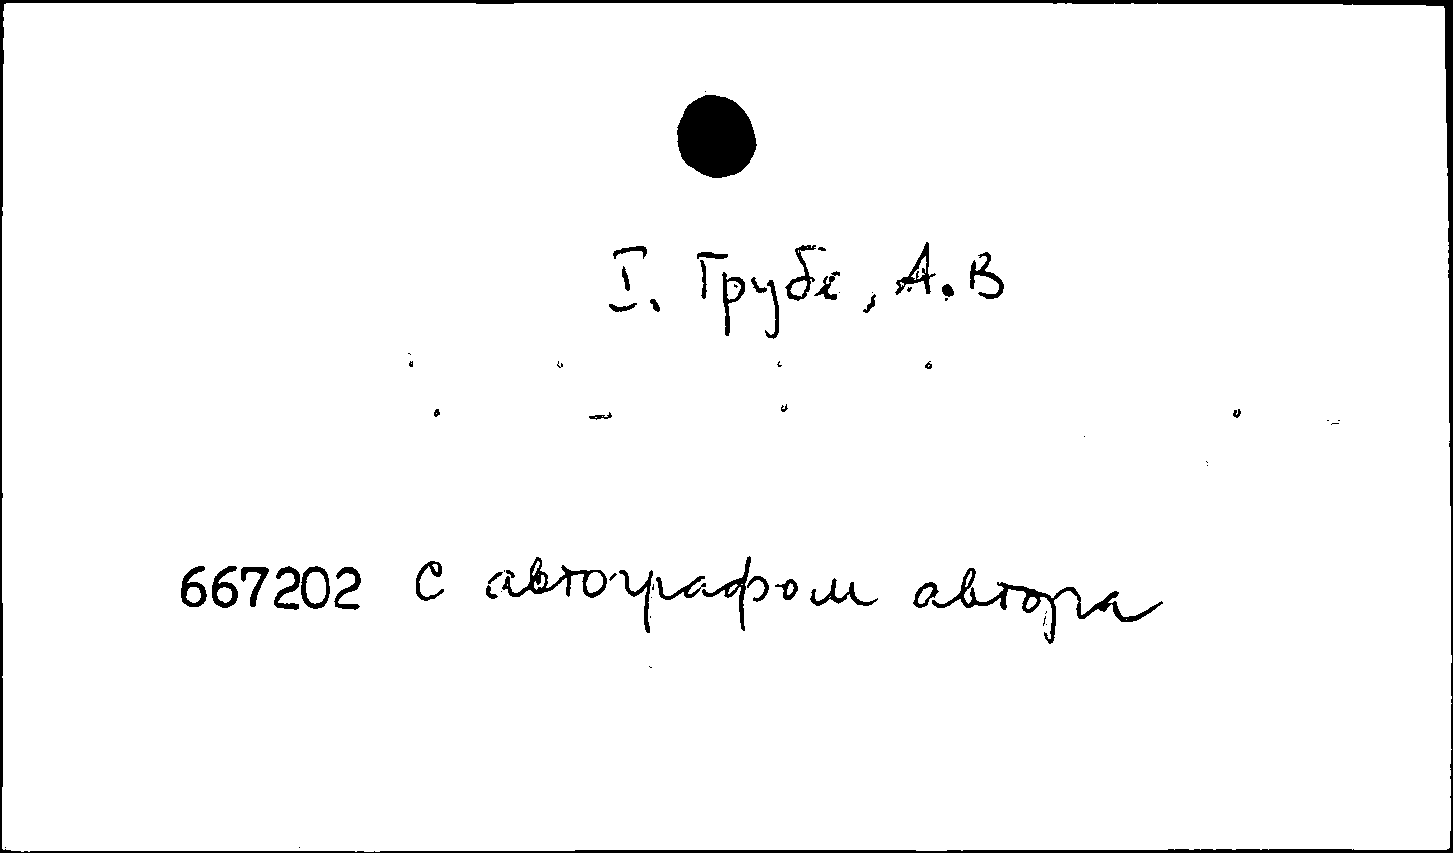 I. Грубе, А.В
667202 С автографом автора